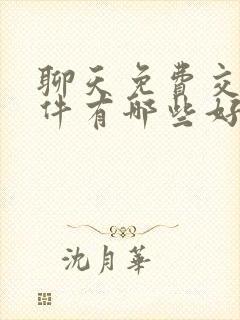 聊天免费交
件有哪些好
沈月华